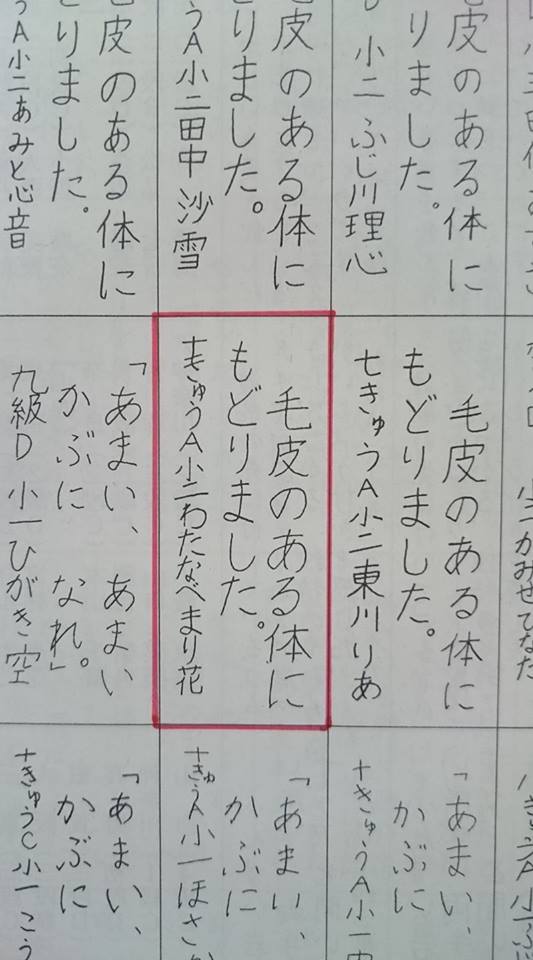 皮のある体に
りました。
小二 ふじ川理心
皮のある体に
りました。
うA小二田中 沙雪
皮のある体に
りました。
うA小二あみと心音
小二かみせひなた
毛皮のある体に
もどりました。
七きゅうA小二東川りあ
毛皮のある体に
もどりました。
七きゅうA小二わたなべまり花
「あまい、あまい
かぶに なれ。」
九級D 小一ひがき空
「あまい、
かぶに
十きゅうA小一中
「あまい、
かぶに
十きゅうA小一ほさ
「あまい、
かぶに
十きゅうC小一こう